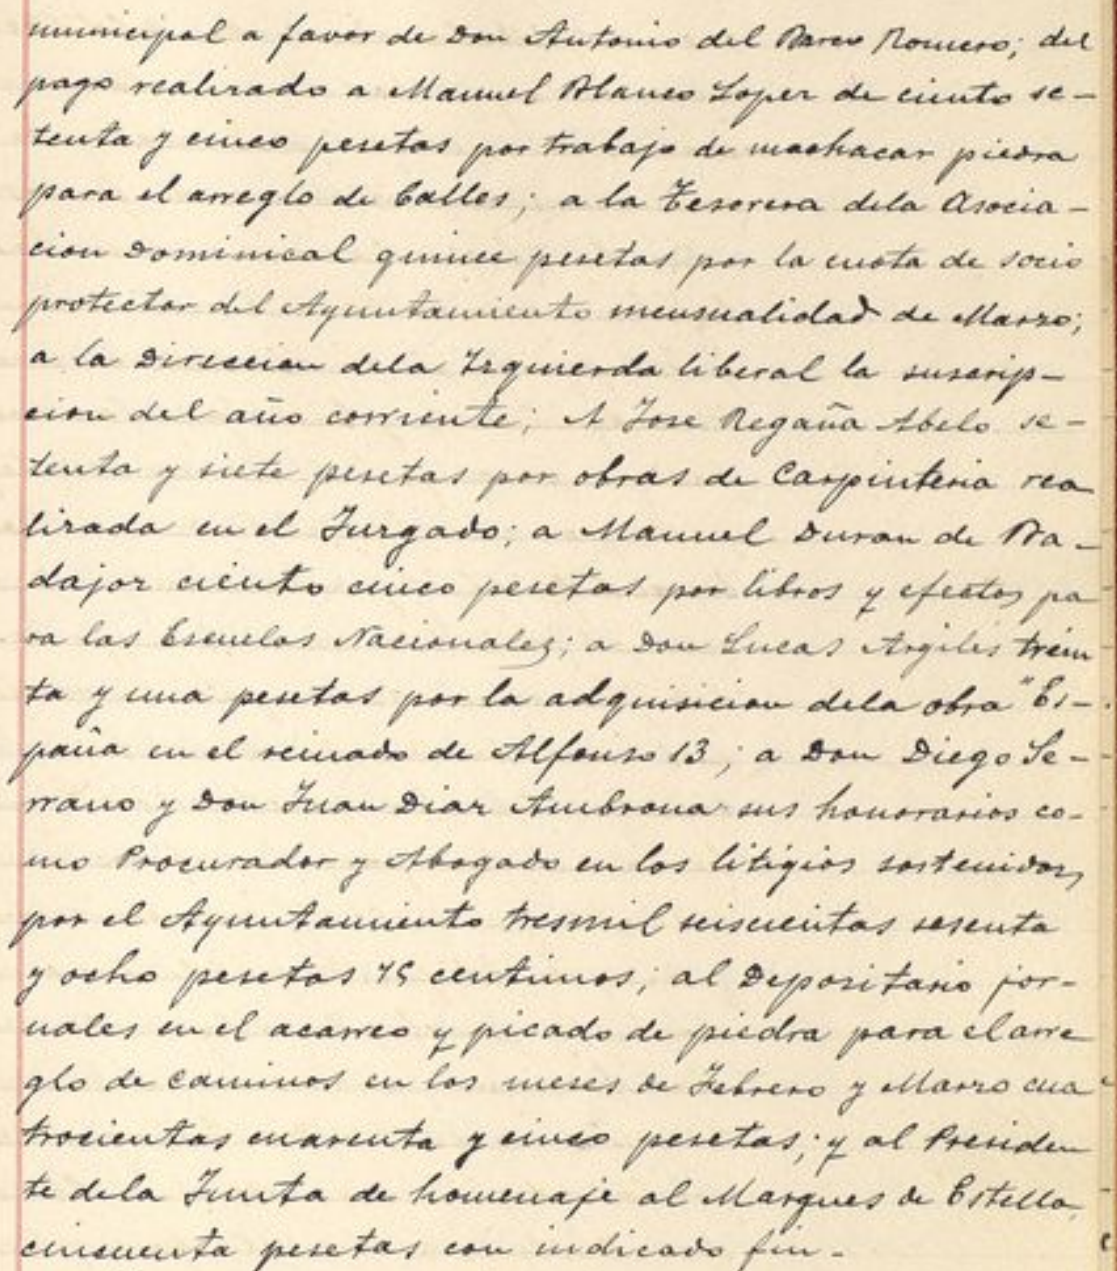 municipal a favor de Don Antonio del Barco Romero; del
pago realizado a Manuel Blanco Lopez de ciento se-
tenta y cinco pesetas por trabajo de machacar piedra
para el arreglo de Calles; a la Tesorera dela Asocia-
cion Dominical quince pesetas por la cuota de socio
protector del Ayuntamiento mensualidad de Marzo;
a la Direccion dela Izquierda liberal la suscrip-
cion del año corriente; A Jose Regaña Abelo se-
tenta y siete pesetas por obras de Carpinteria rea
lizada en el Juzgado; a Manuel Duran de Ba-
dajoz ciento cinco pesetas por libros y efectos pa
ra las Escuelas Nacionales; a Don Lucas Argiles trein
ta y una pesetas por la adquisicion dela obra "Es-
paña en el reinado de Alfonso 13; a Don Diego Se-
rrano y Don Juan Diaz Ambrona sus honorarios co-
mo Procurador y Abogado en los litigios sostenidos
por el Ayuntamiento tresmil seiscientas sesenta
y ocho pesetas 75 centimos; al Depositario jor-
nales en el acarreo y picado de piedra para el arre
glo de caminos en los meses de Febrero y Marzo cua
trocientas cuarenta y cinco pesetas; y al Presiden
te dela Junta de homenaje al Marques de Estella
cincuenta pesetas con indicado fin.-